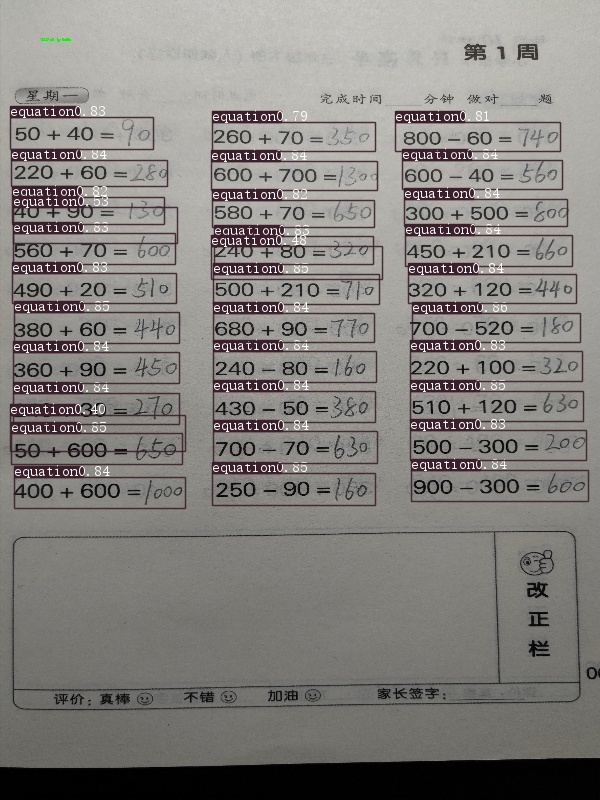 第 1 周
星期一
完成时间 分钟 做对 题
equation0.83
50 + 40 = 90
equation0.84
220 + 60 = 280
equation0.82
equation0.53
40 + 90 = 130
equation0.83
560 + 70 = 600
equation0.83
490 + 20 = 510
equation0.85
380 + 60 = 440
equation0.84
360 + 90 = 450
equation0.84
30 = 270
equation0.40
equation0.85
50 + 600 = 650
equation0.84
400 + 600 = 1000
equation0.79
260 + 70 = 350
equation0.84
600 + 700 = 1300
equation0.82
580 + 70 = 650
equation0.83
equation0.48
240 + 80 = 320
equation0.85
500 + 210 = 710
equation0.84
680 + 90 = 770
equation0.84
240 − 80 = 160
equation0.84
430 − 50 = 380
equation0.84
700 − 70 = 630
equation0.85
250 − 90 = 160
equation0.81
800 − 60 = 740
equation0.84
600 − 40 = 560
equation0.84
300 + 500 = 800
equation0.84
450 + 210 = 660
equation0.84
320 + 120 = 440
equation0.86
700 − 520 = 180
equation0.83
220 + 100 = 320
equation0.85
510 + 120 = 630
equation0.83
500 − 300 = 200
equation0.84
900 − 300 = 600
改正栏
评价：真棒 不错 加油 家长签字：